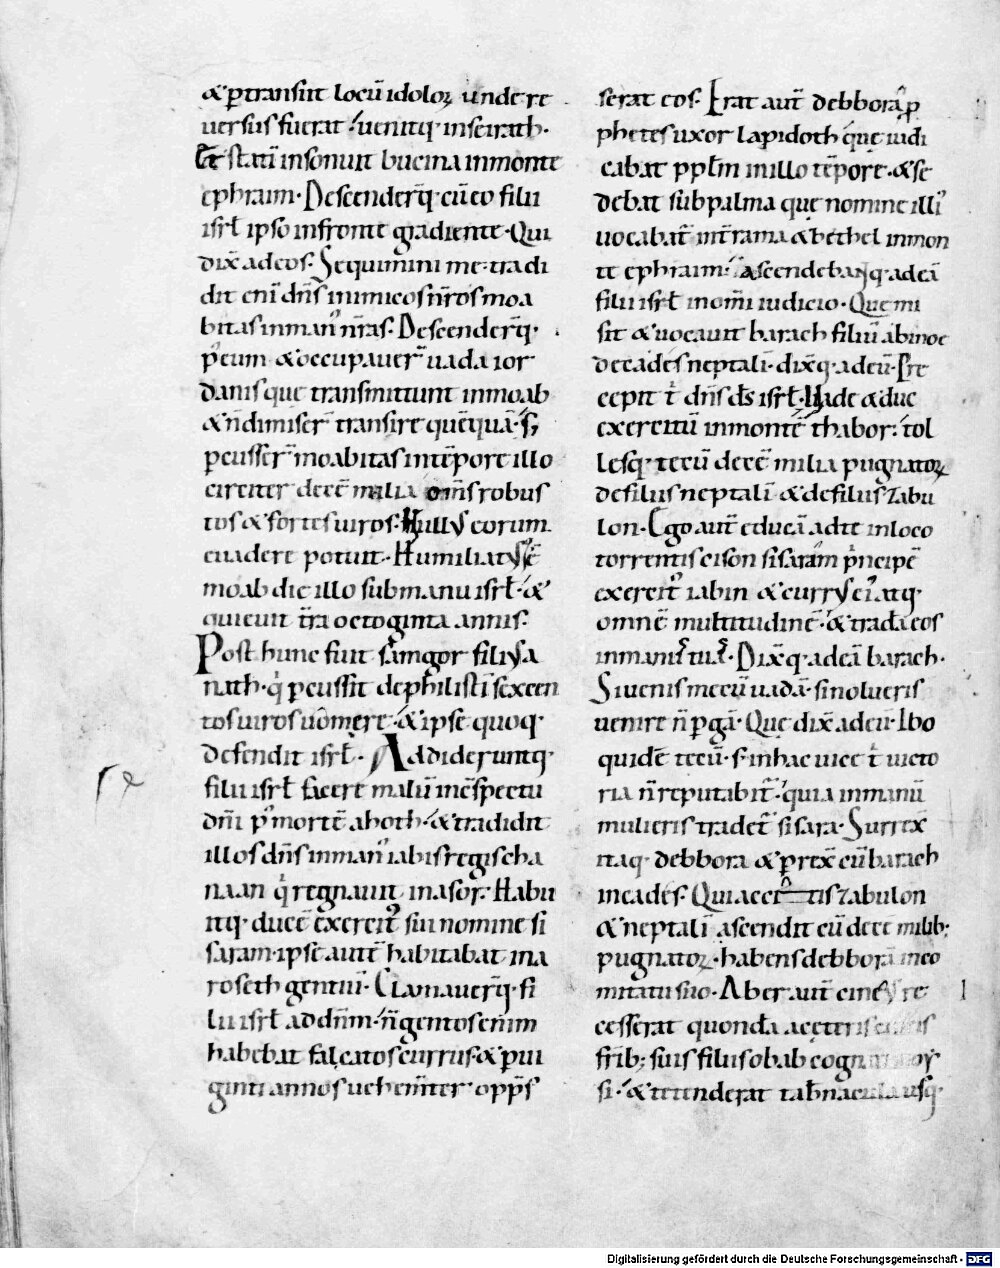 & ꝑtransiit locū idoloꝝ unde re
uersus fuerat. uenitq; inseirath.
Et statī insonuit bucina inmonte
ephraim. Descenderq̄; cū eo filii
isrł ipso infronte gradiente. Qui
dix̄ adeos. Sequimini me. tradi
dit eni dn̄s inimicos nr̄os moa
bitas inman nr̄as. Descenderq̄;
p̄ eum & occupauer̄ uada ior
danis que transmittunt inmoab
& n̄ dimiser̄ transire quēquā. s;
ꝑcusser̄ moabitas intēpore illo
circiter decē milia om̄s robus
tos & fortes uiros. Nullꝰ eorum
euadere potuit. Humiliatꝰ ē
moab die illo submanu isrł. &
quieuit tr̄a octoginta annis.
Post hunc fuit samgor filiꝰ a
nath. q̇ ꝑcussit dephilistī sexcen
tos uiros uōmere. & ipse quoq;
defendit isrł. Addideruntq;
filii isrł facere malū incspectu
dn̄i p̄ mortē ahoth. & tradidit
illos dn̄s inman iabis regis cha
naan q̇ regnauit inasor. Habu
itq; ducē exercit sui nomine si
saram. ipse autē habitabat ina
roseth gentiū. Clamauerq̄; fi
lii isrł ad dn̄m. n̄gentos enim
habebat falcatos currus. & ꝑ ui
ginti annos uehemter opp̄s
serat eos. Erat aut̄ debbora ꝓ
phetes uxor lapidoth que iudi
cabat ppłm inillo tēpore. & se
debat sub palma que nomine illi
uocabat̄ int̄ rama & bethel inmon
te ephraim. ascendebantq; adeā
filii isrł inom̄i iudicio. Que mi
sit & uocauit barach filiū abinoe
decades neptalī. dixq̄; adeū. Pre
cepit t̄ dn̄s ds̄ isrł. Uade & duc
exercitū inmontē thabor. tol
lesq; tecū decē milia pugnatoꝝ
defiliis neptalī & defiliis zabu
lon. Ego aut̄ educā adte inloco
torrentis cison sisaram p̄ncipē
exercit iabin & currꝰ eiꝰ atq;
omnē multitudinē. & tradā eos
inmanu tua. Dixq̄; adeā barach.
Si uenis mecū uadā. si nolueris
uenire n̄ ꝑgā. Que dix̄ adeū. Ibo
quidē tecū. s; inhac uice t̄ uicto
ria n̄ reputabit̄. quia inmanū
mulieris tradet̄ sisara. Surrex̄
itaq; debbora & ꝑrex̄ cū barach
incades. Qui accitis zabulon
& neptalī ascendit cū decē milib;
pugnatoꝝ. habens debborā inco
mitatu suo. Aber aut̄ cineꝰ re
cesserat quondā aceteris cineis
fr̄ib; suis filiis obab cognati moy
si. & tetenderat tab̄nacula usq;